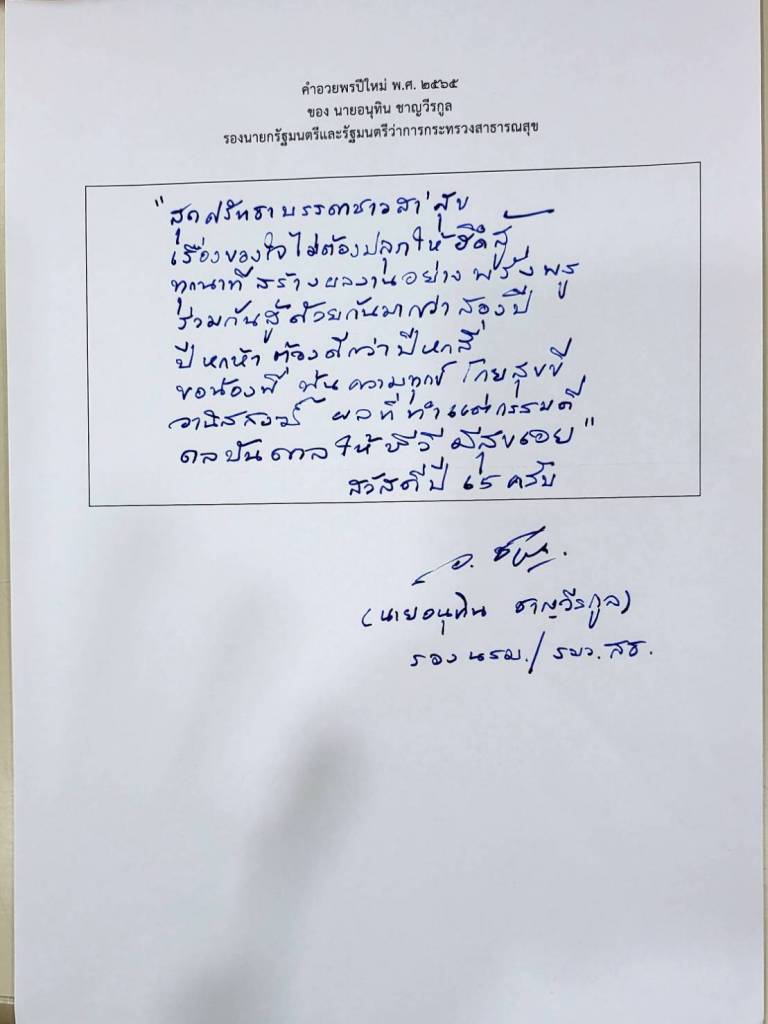 คำอวยพรปีใหม่ พ.ศ. ๒๕๖๕
ของ นายอนุทิน ชาญวีรกูล
รองนายกรัฐมนตรีและรัฐมนตรีว่าการกระทรวงสาธารณสุข
"สุดศรัทธาบรรดาชาวสา'สุข
เรื่องของใจไม่ต้องปลุกให้ฮึดสู้
ทุกนาทีสร้างผลงานอย่างพรั่งพรู
ร่วมกันสู้ด้วยกันมากว่าสองปี
ปีหกห้า ต้องดีกว่าปีหกสี่
ขอน้องพี่ พ้นความทุกข์ โกยสุขขี
อานิสสงฆ์ ผลที่ทำแต่กรรมดี
ดลบันดาลให้ชีวีมีสุขเอย"
สวัสดีปี ๖๕ ครับ
(นายอนุทิน ชาญวีรกูล)
รองนรม./รมว.สธ.